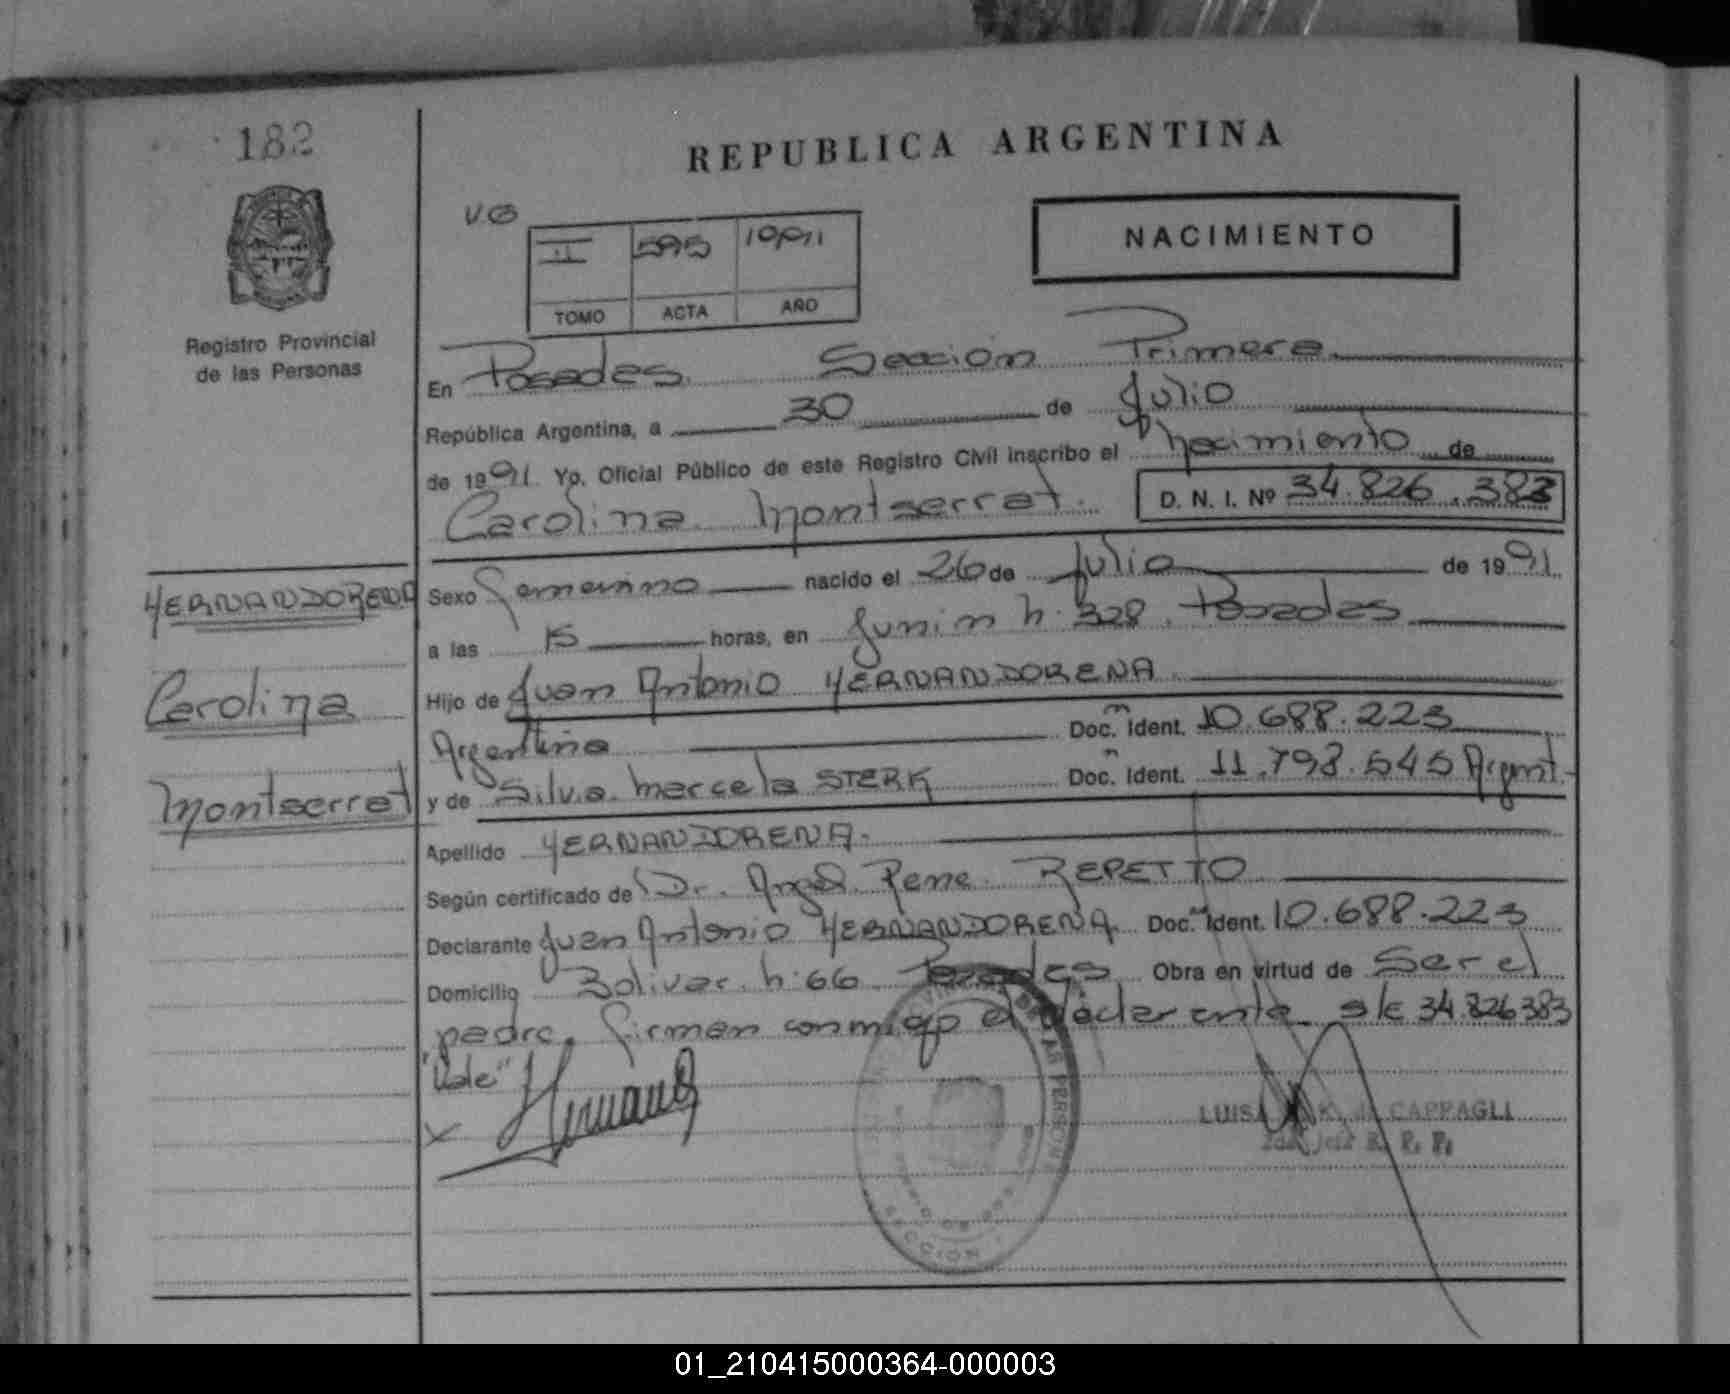 182
REPUBLICA ARGENTINA
NACIMIENTO
II 595 1991
TOMO ACTA AÑO
Registro Provincial
de las Personas
En Posadas Sección Primera
República Argentina, a 30 de Julio
de 1991. Yo, Oficial Público de este Registro Civil inscribo el Nacimiento de
Carolina Montserrat. D. N. I. Nº 34.826.383
HERNANDORENA
Carolina
Montserrat
Sexo Femenino nacido el 26 de Julio de 1991.
a las 15 horas, en Junin n: 328. Posadas
Hijo de Juan Antonio HERNANDORENA
Argentino Doc. Ident. 10.688.223
y de Silvia Marcela STERK Doc. Ident. 11.793.545 Argent.
Apellido HERNANDORENA.
Según certificado de Dr. Angel Rene REPETTO
Declarante Juan Antonio HERNANDORENA. Doc. Ident. 10.688.223
Domicilio Bolivar n: 66 Posadas Obra en virtud de Ser el
padre. Firman conmigo el declarante s/r 34.826383
"Vale"
LUISA CAPPAGLI
SECCION
01_210415000364-000003